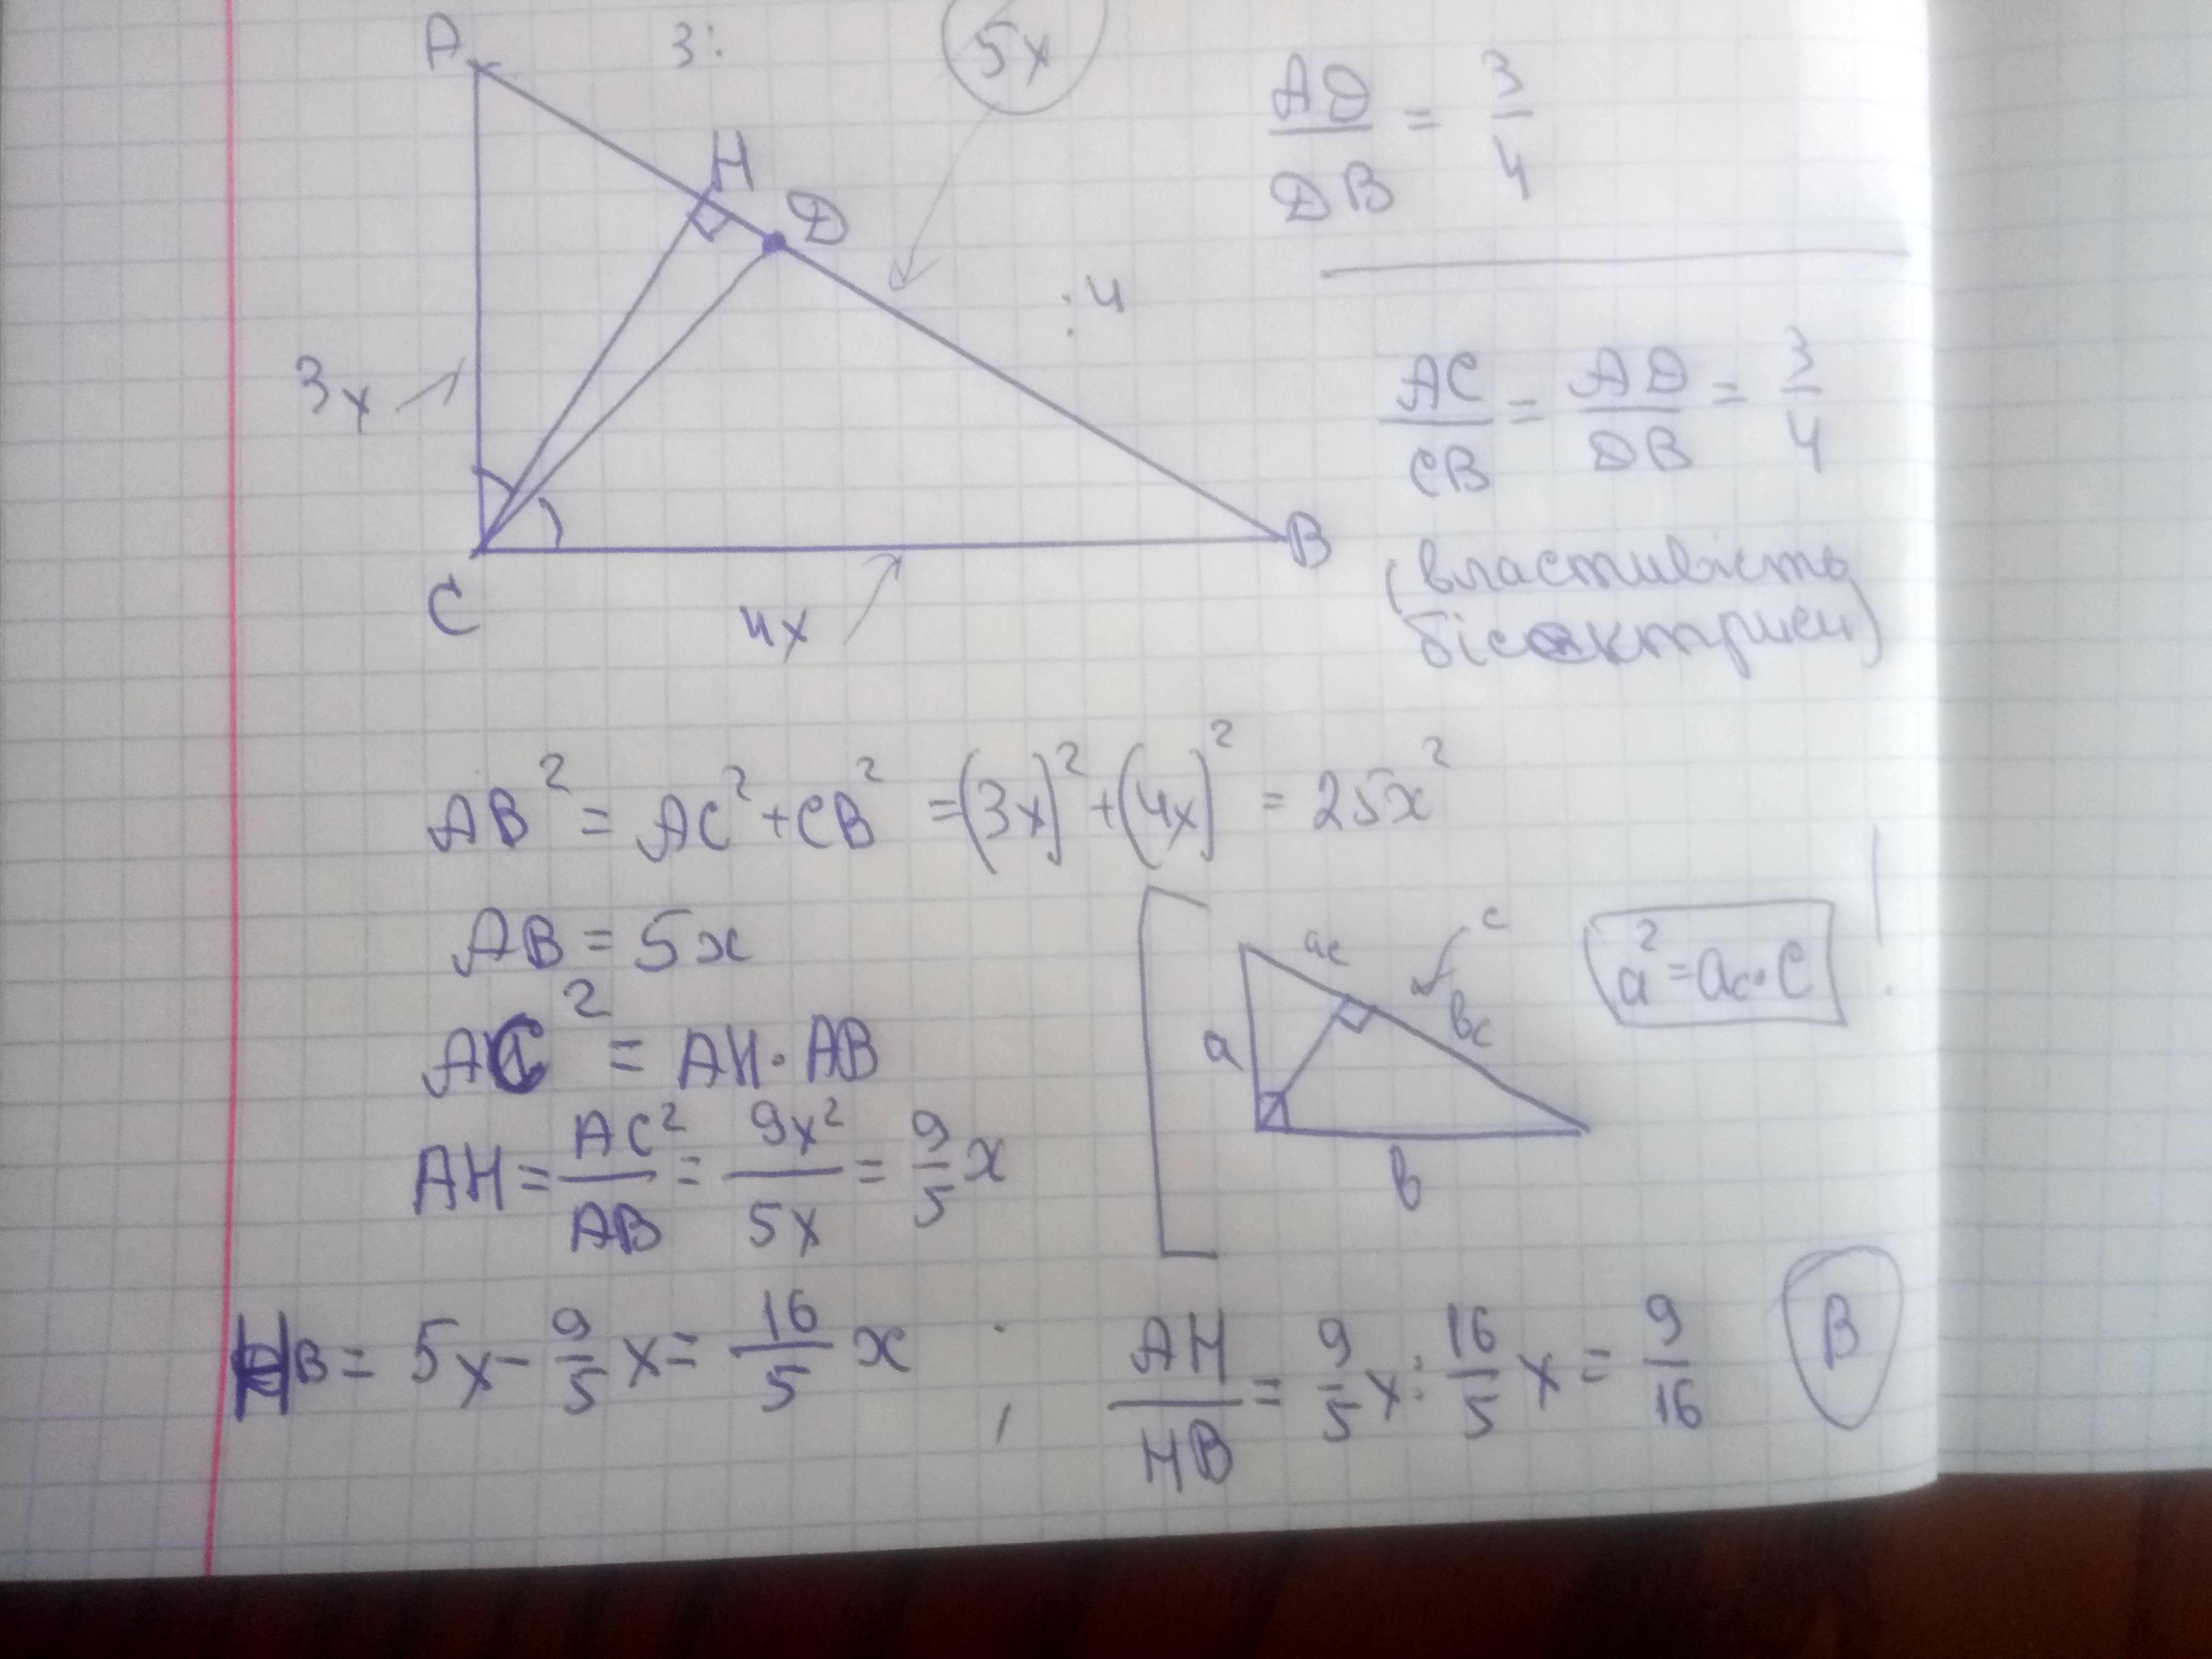 A 3: 5x
H
D
:4
3x
C
4x
B
AD/DB = 3/4
AC/CB = AD/DB = 3/4
(властивість
бісектриси)
AB² = AC² + CB² = (3x)² + (4x)² = 25x²
AB = 5x
AC² = AH · AB
AH = AC²/AB = 9x²/5x = 9/5 x
ac
c
bc
a
b
a² = ac · c !
HB = 5x - 9/5 x = 16/5 x ; AH/HB = 9/5 x : 16/5 x = 9/16 B